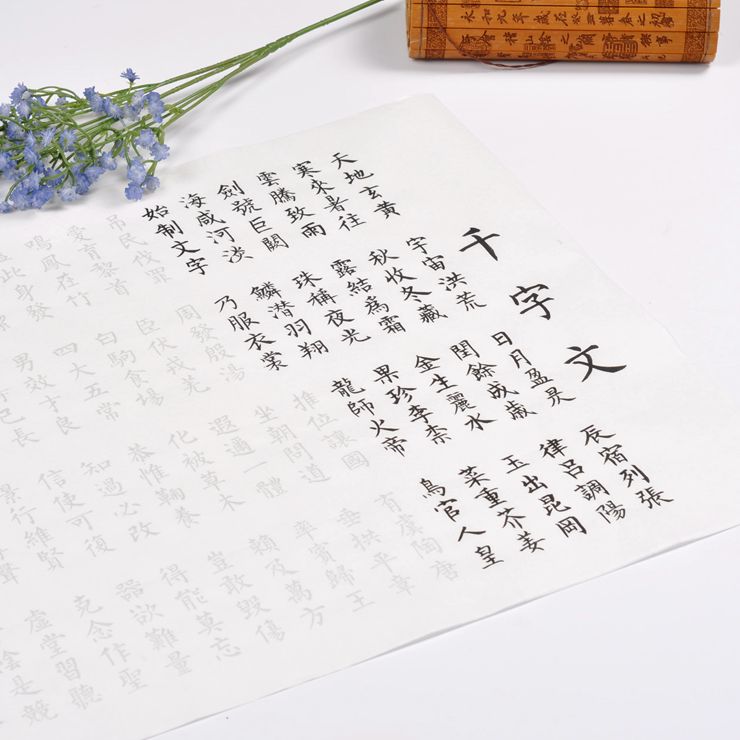 千字文
天地玄黃 宇宙洪荒 日月盈昃 辰宿列張
寒來暑往 秋收冬藏 閏餘成歲 律呂調陽
雲騰致雨 露結為霜 金生麗水 玉出昆岡
劍號巨闕 珠稱夜光 果珍李柰 菜重芥姜
海咸河淡 鱗潛羽翔 龍師火帝 鳥官人皇
始制文字 乃服衣裳 推位讓國 有虞陶唐
吊民伐罪 周發殷湯 坐朝問道 垂拱平章
愛育黎首 臣伏戎羌 遐邇一體 率賓歸王
鳴鳳在竹 白駒食場 化被草木 賴及萬方
此身發 四大五常 恭惟鞠養 豈敢毀傷
男效才良 知過必改 得能莫忘
己長 信使可復 器欲難量
景行維賢 克念作聖
聲 虛堂習聽
陰是競
永和九年歲在癸丑暮春之初
會稽山陰之